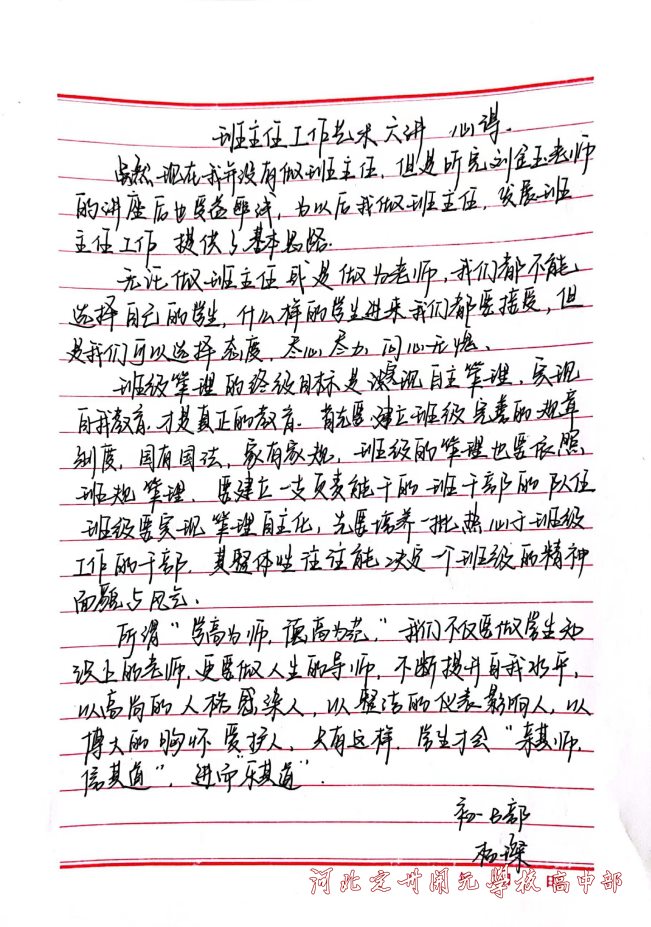 班主任工作艺术六讲 心得.
虽然现在我并没有做班主任, 但是听完刘金玉老师
的讲座后也受益匪浅, 为以后我做班主任, 发展班
主任工作 提供了基本思路.
无论做班主任或是做为老师, 我们都不能
选择自己的学生, 什么样的学生进来我们都要接受, 但
是我们可以选择态度, 尽心尽力 问心无愧.
班级管理的终级目标是实现自主管理, 实现
自我教育, 才是真正的教育. 首先要建立班级完善的规章
制度, 国有国法, 家有家规, 班级的管理也要依照
班规管理. 要建立一支负责能干的班干部的队伍
班级要实现管理自主化, 先要培养一批热心于班级
工作的干部. 其整体性往往能决定一个班级的精神
面貌与风气.
所谓“学高为师, 德高为范,”我们不仅要做学生知
识上的老师, 更要做人生的导师, 不断提升自我水平,
以高尚的人格感染人, 以整洁的仪表影响人, 以
博大的胸怀爱护人, 只有这样, 学生才会“亲其师,
信其道”, 进而“乐其道”.
初一部
杨璨
河北定州開元學校高中部